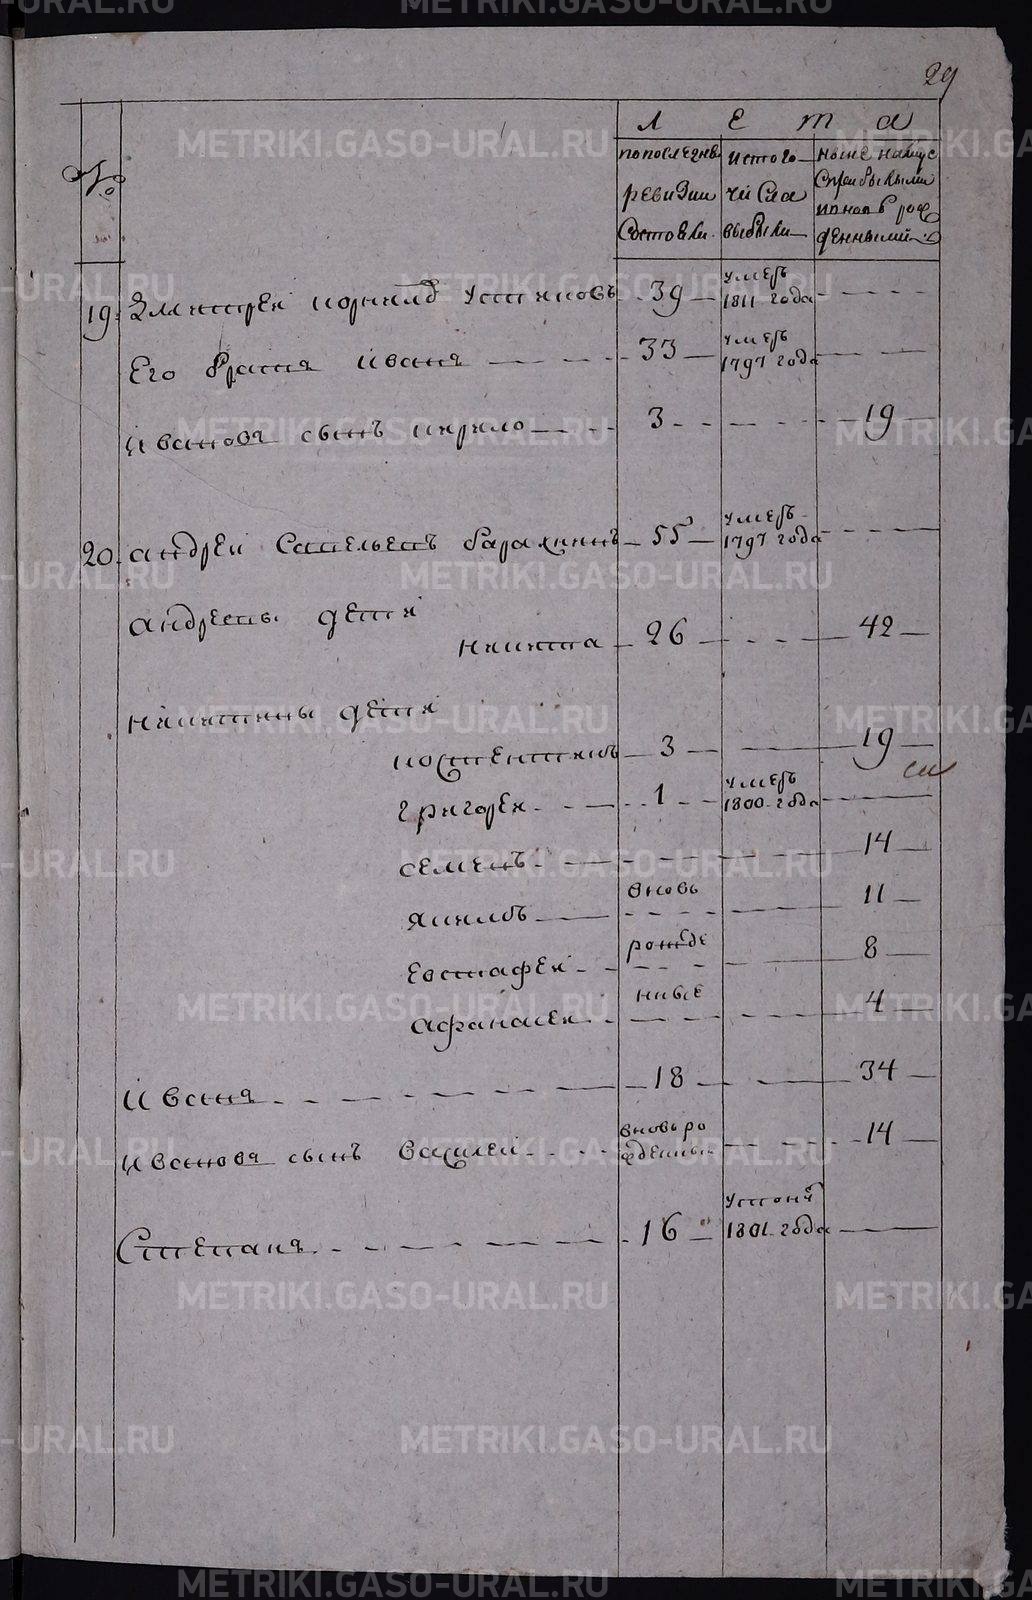 29
№
Л Е т а
по последней ревизии состояли
ис того числа выбыли
ныне налицо с прибылыми и новорожденными
19. Дмитрей Устиновъ 39 умеръ 1811 года
Его братья Иванъ 33 умеръ 1797 года
Ивановъ сынъ Кирило 3 19
20. Андрей Савельевъ 55 умеръ 1797 года
Андреевы дети
Никита 26 42
Никитины дети
Костентинъ 3 19
Григорей 1 умеръ 1800 года
Семенъ 14
Якимъ вновь 11
Евстафей рожде 8
Афанасей нные 4
Иванъ 18 34
Ивановъ сынъ Василей вновь рожденный 14
Степанъ 16 1801 года
METRIKI.GASO-URAL.RU